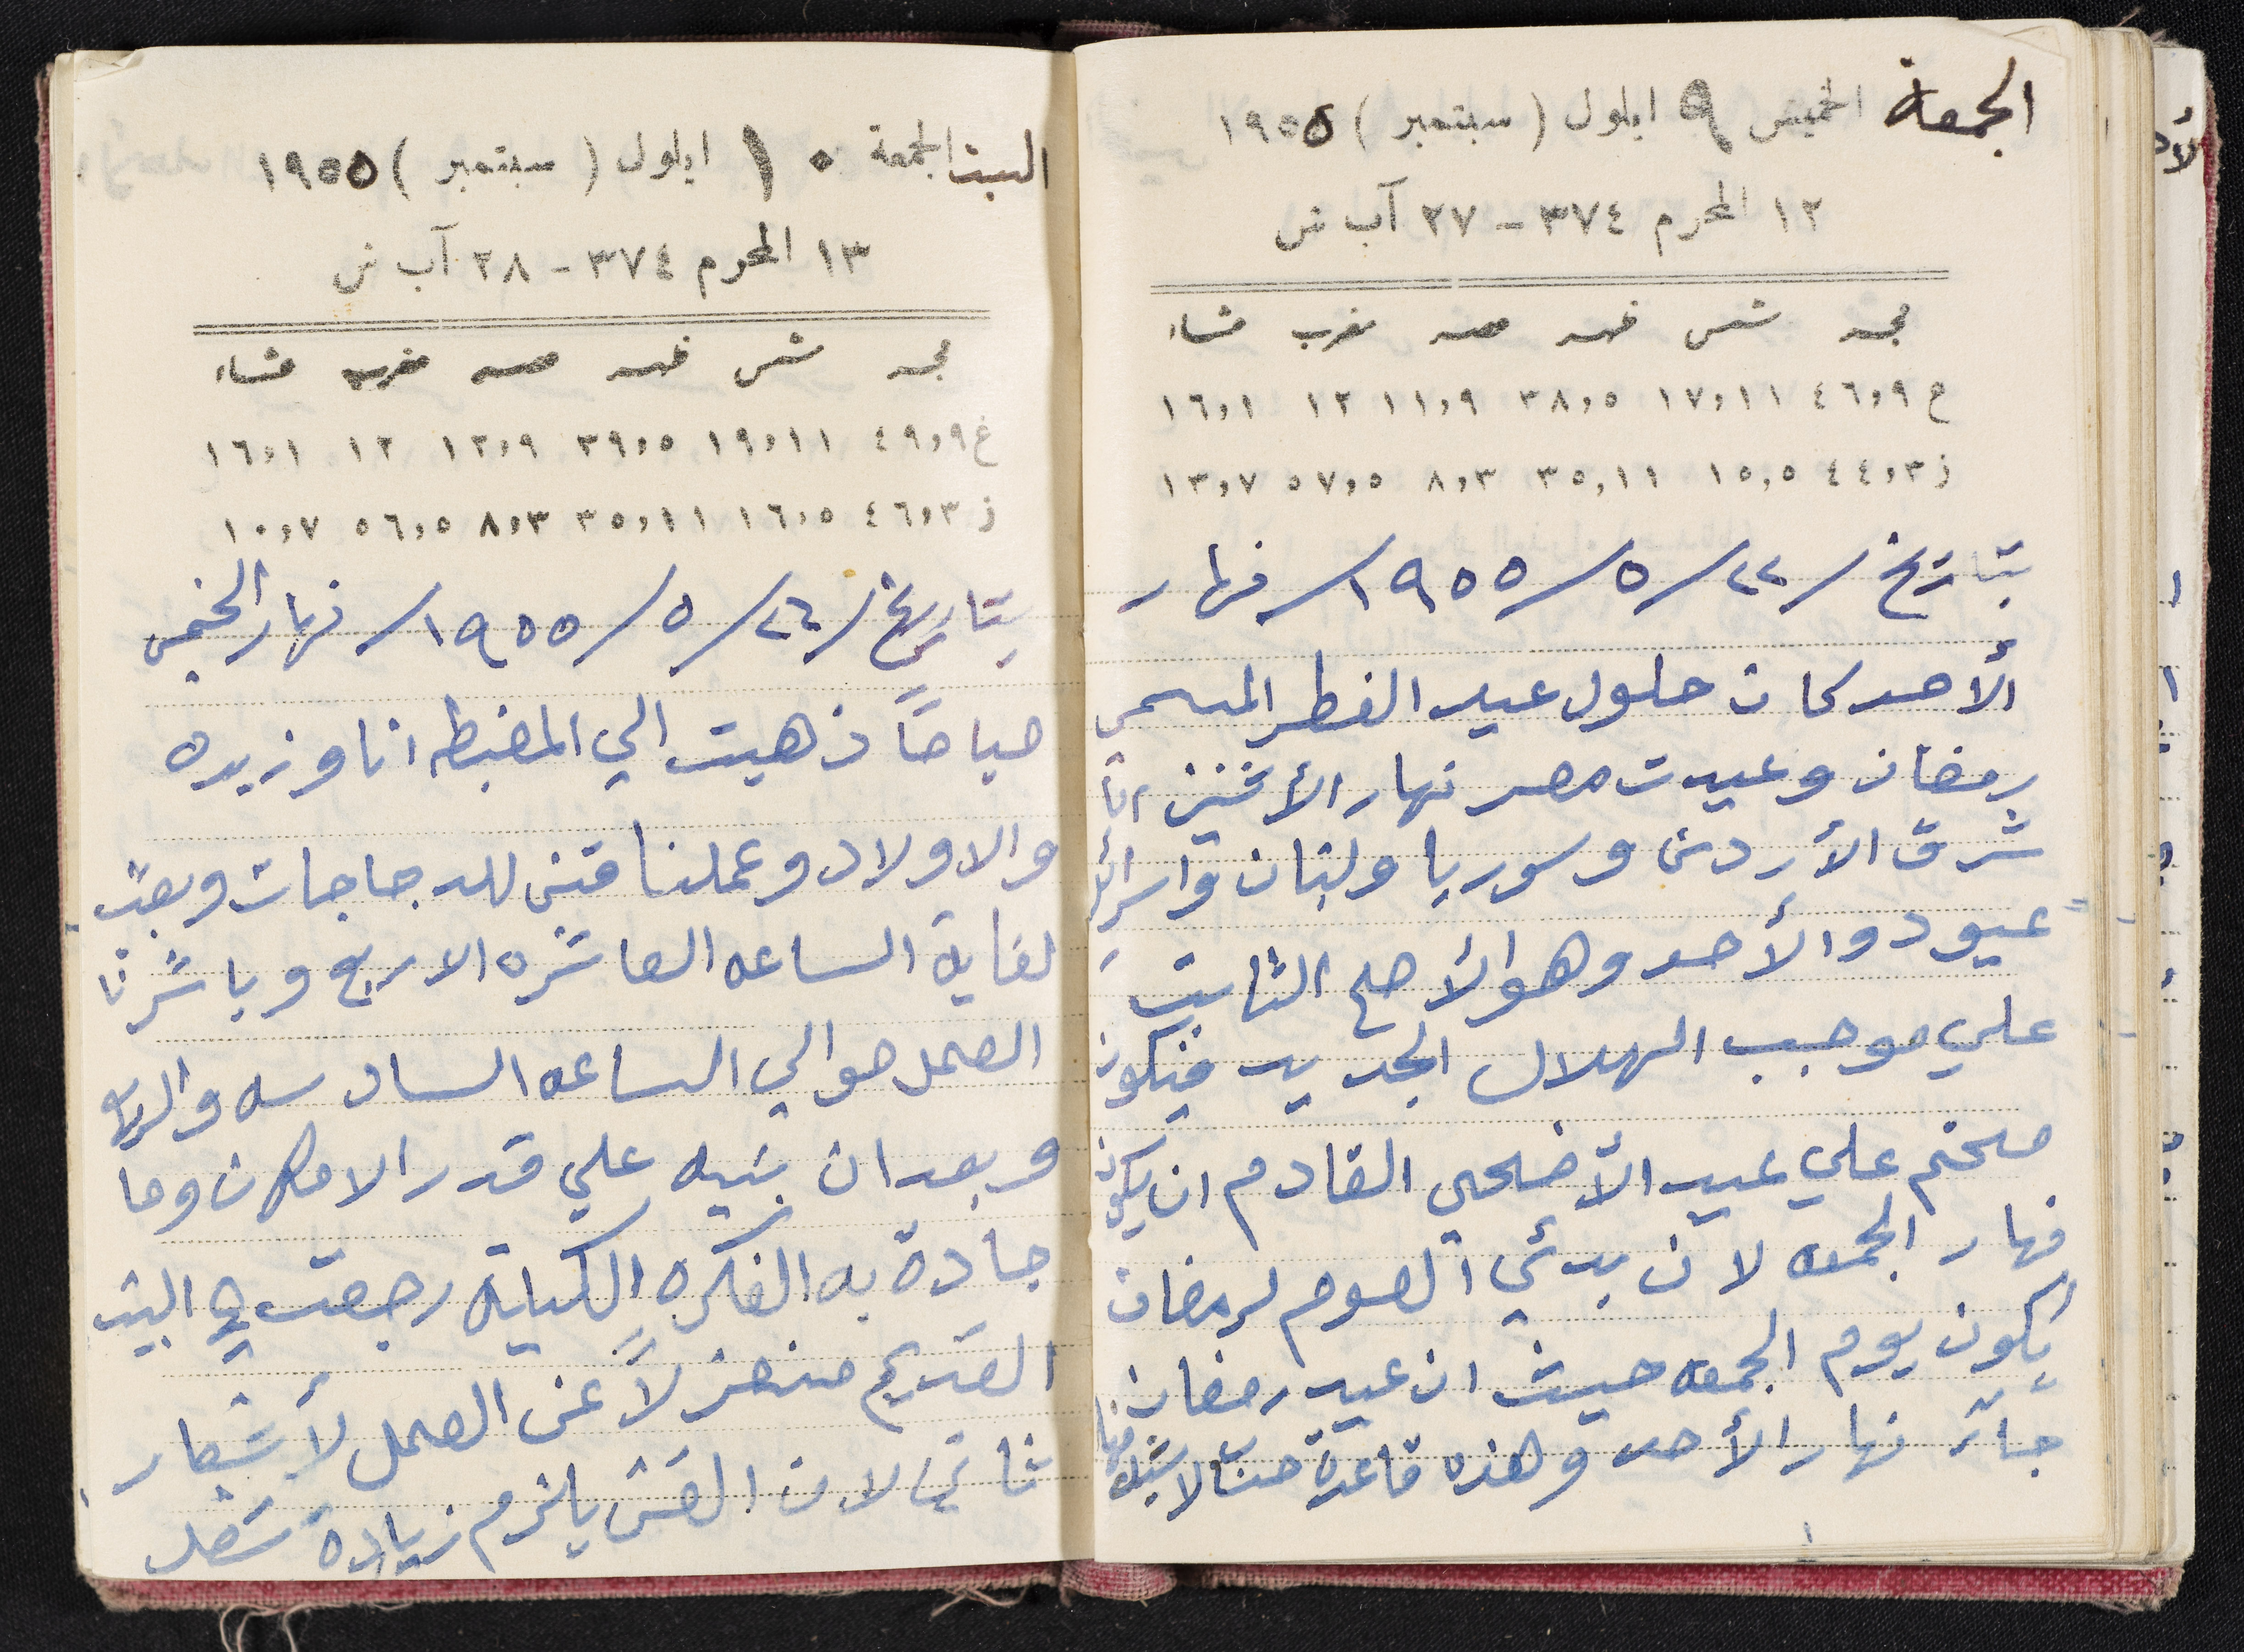 الجمعة الخميس ٩ ايلول (سبتمبر) ١٩٥٥
١٢ المحرم ٣٧٤ - ٢٧ آب ش
فجر شمس ظهر عصر مغرب عشاء
غ ٤٦،٩ ١٧،١١ ٣٨،٥ ١١،٩ ١٢ ١٦،١
ز ٤٤،٣ ١٥،٥ ٣٥،١١ ٨،٣ ٥٧،٥ ١٣،٧
بتاريخ /٢٢/٥/١٩٥٥/ نهار
الأحد كان حلول عيد الفطر المسمى
رمضان وعيدت مصر نهار الأثنين انا
شرق الأردن وسوريا ولبنان واسرائيل
عيودو الأحد وهو الأصح الثابت
علي موجب الهلال الجديد فيكون
محتم علي عيد الأضحى القادم ان يكون
نهار الجمعه لان بدئي الصوم لرمضان
يكون يوم الجمعه حيث ان عيد رمضان
جائز نهار الأحد وهذه قاعدة
السبت الجمعة ١٠ ايلول (سبتمبر) ١٩٥٥
١٣ المحرم ٣٧٤ - ٢٨ آب ش
فجر شمس ظهر عصر مغرب عشاء
غ ٤٩،٩ ١٩،١١ ٣٩،٥ ١٢،٩ ١٢ ١٦،١
ز ٤٦،٣ ١٦،٥ ٣٥،١١ ٨،٣ ٥٦،٥ ١٠،٧
بتاريخ /٢٦/٥/١٩٥٥/ نهار الخميس
صباحاً ذهبت الي المضبطه انا وزيده
والاولاد وعملنا قنن للدجاجات وبقيت
لغاية الساعه العاشره الاربع وباشرنا
العمل حوالي الساعه السادسه والربع
وبعد ان بنيه علي قدر الامكان وما
جادة به الفكره الكباية رجعت الي البيت
القديم منعزلاً عن العمل لأشعار
ثاني لان القن يلزم زيادة شغل